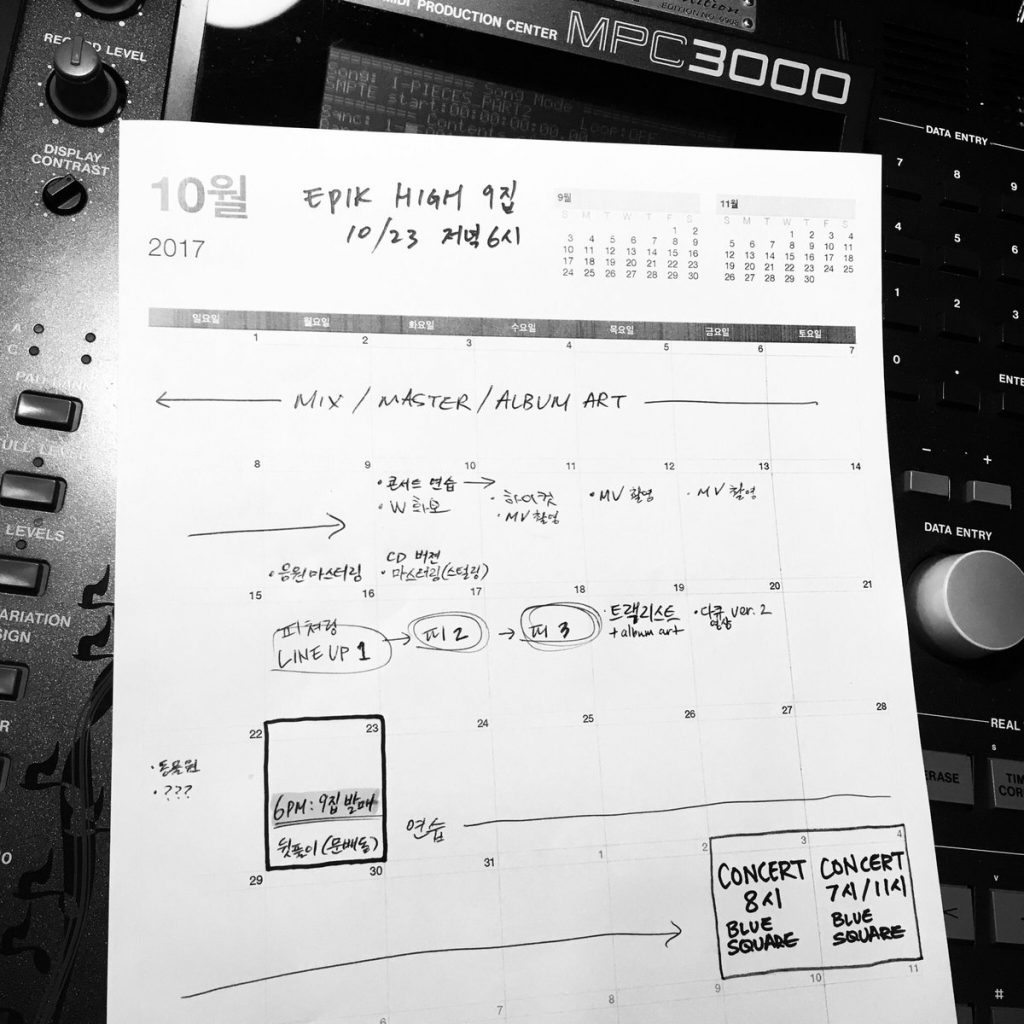 EDITION NO. 0998
MIDI PRODUCTION CENTER MPC3000
RECORD LEVEL
DISPLAY
CONTRAST
DATA ENTRY
7 8 9
4 5 6
1 2 3
0 .
ENTE
- +
DATA ENTRY
LEVELS
ARIATION
SIGN
REAL
ERASE
TIM
COR
10월
2017
EPIK HIGH 9집
10/23 저녁 6시
9월
S M T W T F S
1 2
3 4 5 6 7 8 9
10 11 12 13 14 15 16
17 18 19 20 21 22 23
24 25 26 27 28 29 30
11월
S M T W T F S
1 2 3 4
5 6 7 8 9 10 11
12 13 14 15 16 17 18
19 20 21 22 23 24 25
26 27 28 29 30
일요일 월요일 화요일 수요일 목요일 금요일 토요일
1 2 3 4 5 6 7
MIX / MASTER / ALBUM ART
8 9 10 11 12 13 14
·콘서트 연습
·W 화보
·하이컷
·MV 촬영
·MV 촬영
·MV 촬영
·음원 마스터링
CD 버젼
·마스터링(스털링)
15 16 17 18 19 20 21
피쳐링
LINE UP 1
피 2
피 3
·트랙리스트
+ album art
·다큐 ver. 2
영상
22 23 24 25 26 27 28
·동물원
·???
6PM: 9집 발매
뒷풀이 (문배동)
연습
29 30 31 1 2 3 4
CONCERT
8시
BLUE
SQUARE
CONCERT
7시/11시
BLUE
SQUARE
6 7 8 9 10 11